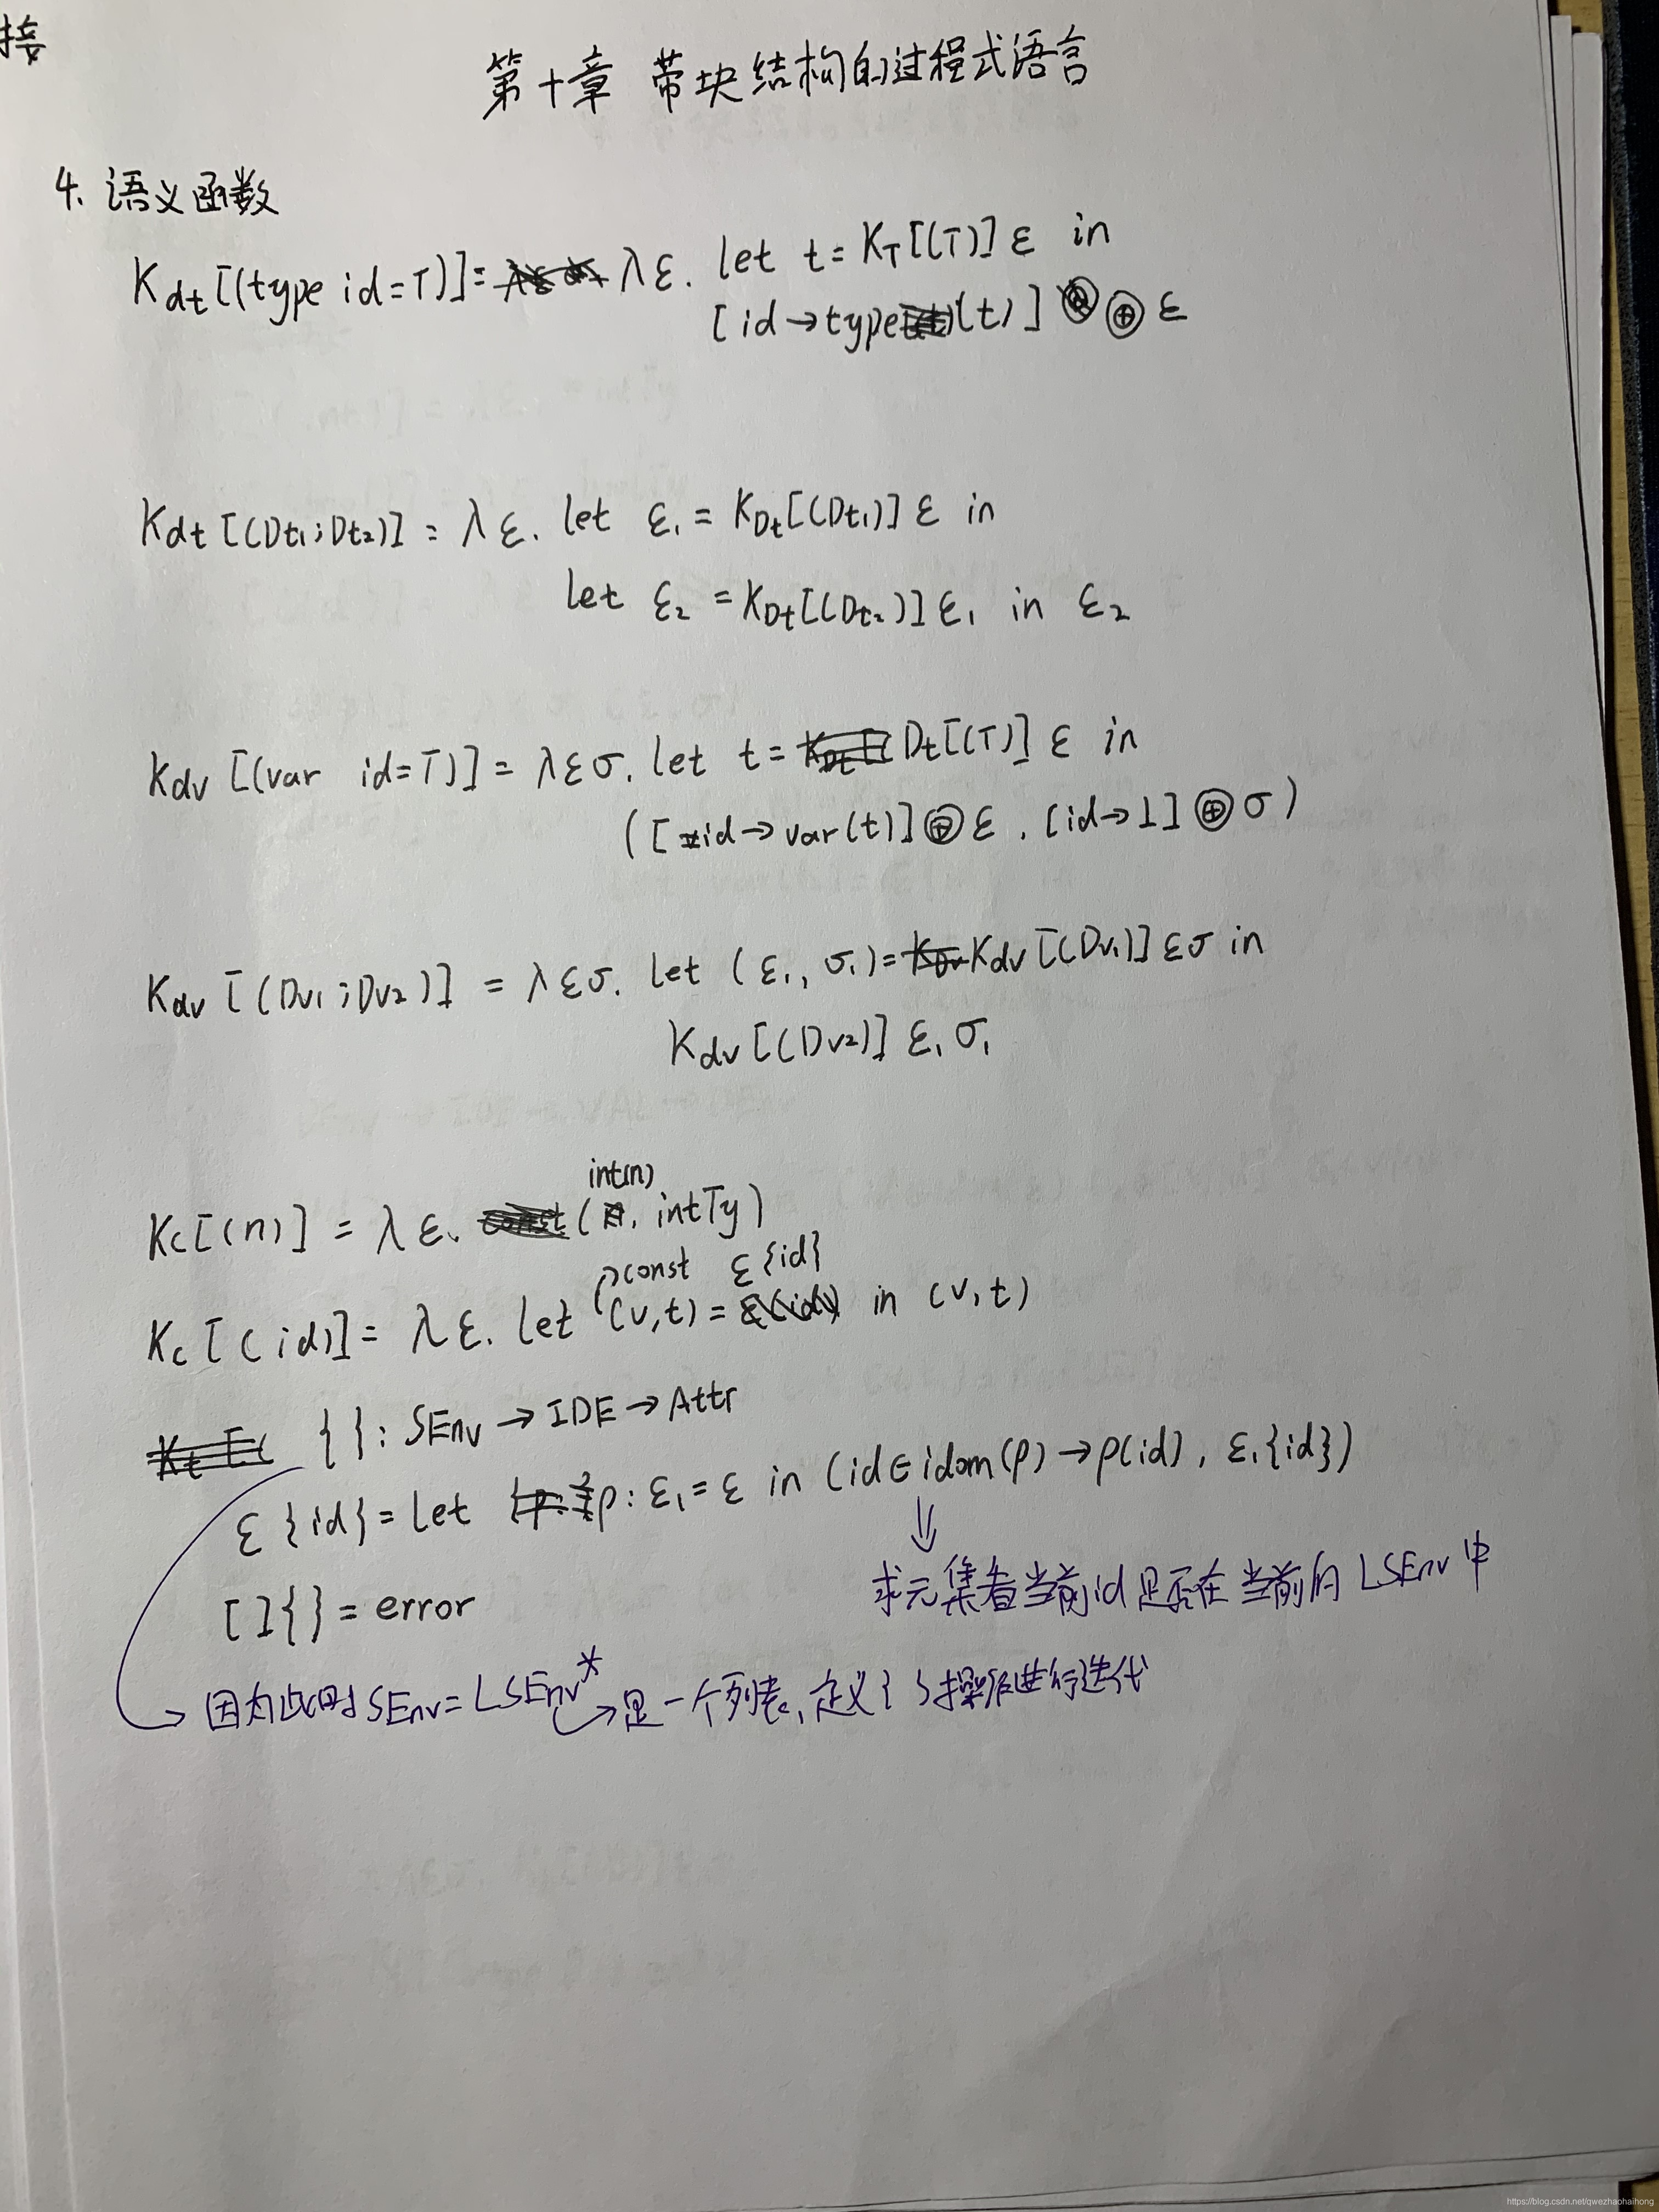 接
第十章 带块结构的过程式语言
4. 语义函数
Kdt[(type id=T)]= λε. let t=KT[(T)] ε in
[id→type(t)] ⊕ ε
Kdt[(Dt1;Dt2)] = λε. let ε1=KDt[(Dt1)] ε in
let ε2 =KDt[(Dt2)] ε1 in ε2
Kdv [(var id=T)] = λεσ. let t= Dt[(T)] ε in
([id→var(t)] ⊕ ε . [id→⊥] ⊕ σ)
Kdv [(Dv1;Dv2)] = λεσ. let (ε1, σ1)=Kdv[(Dv1)] εσ in
Kdv[(Dv2)] ε1 σ1
int(n)
Kc[(n)] = λε. ( , intTy)
const ε{id}
Kc[(id)]= λε. let (v,t)= in (v,t)
{ }: SEnv → IDE → Attr
ε{id}=let ρ:ε1=ε in (id∈idom(ρ)→ρ(id), ε1{id})
求元集看当前id是否在当前的LSEnv中
[]{}=error
因为此时SEnv=LSEnv* 是一个列表,定义{}操作进行迭代
https://blog.csdn.net/qwezhaohaihong